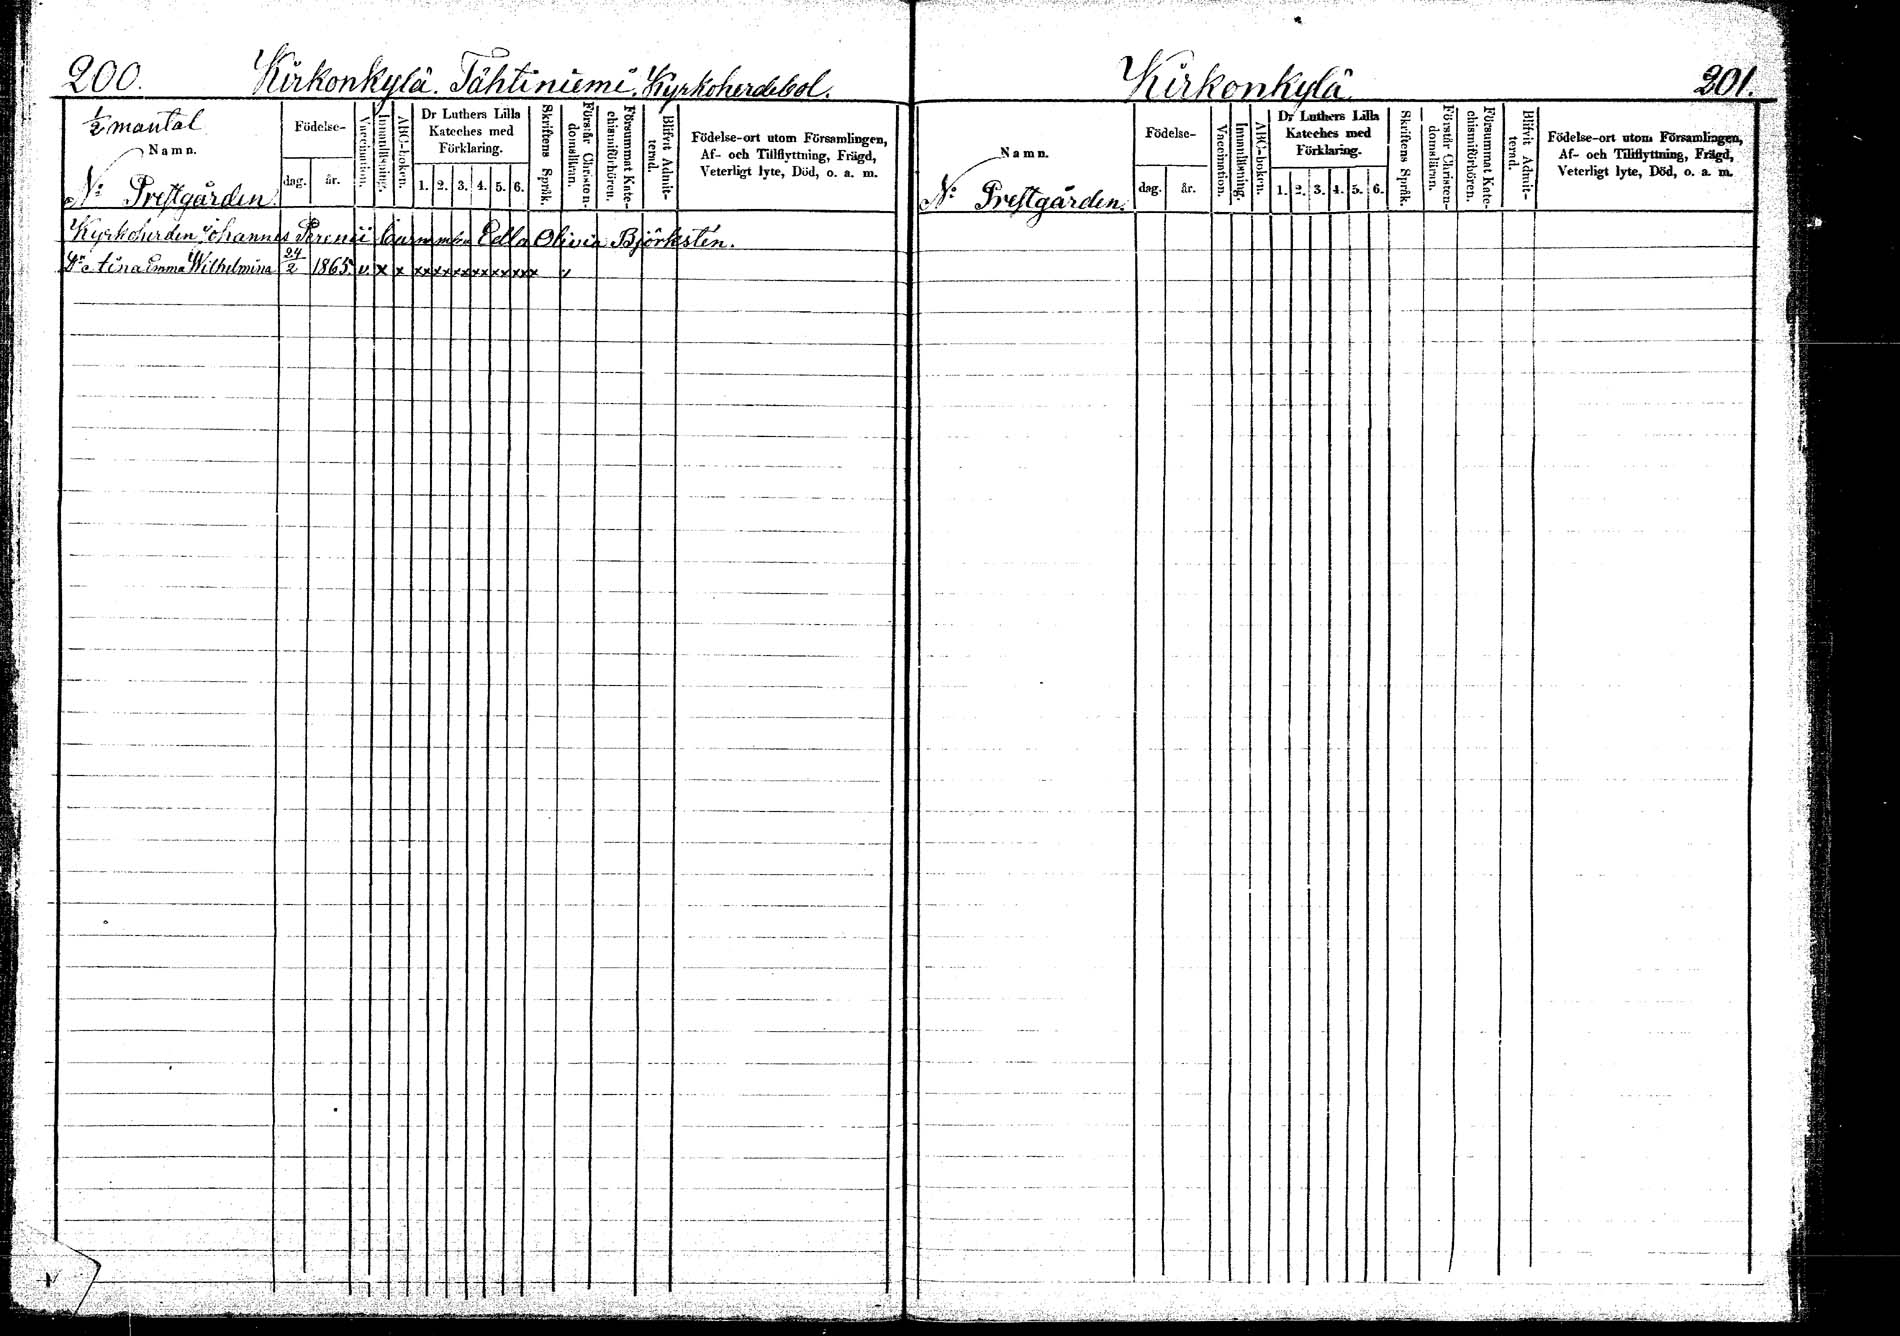 200. Kirkonkylä. Tähtiniemi. Kyrkoherdebol.
½ mantal
Namn.
Nº Prestgården
Födelse-
dag. år.
Vaccination.
Innanläsning.
ABC-boken.
Dr Luthers Lilla
Kateches med
Förklaring.
1. 2. 3. 4. 5. 6.
Skriftens Språk.
Förstår Christen-
domsläran.
Försummat Kate-
chismiförhören.
Blifvit Admit-
terad.
Födelse-ort utom Församlingen,
Af- och Tillflyttning, Frägd,
Veterligt lyte, Död, o. a. m.
Kyrkoherden Johannes Edla Olivia Björkstén.
Emma Wilhelmina 24/2 1865 v x x x x x x x x x x x x x x x v
Kirkonkylä 201.
Namn.
Nº Prestgården.
Födelse-
dag. år.
Vaccination.
Innanläsning.
ABC-boken.
Dr Luthers Lilla
Kateches med
Förklaring.
1. 2. 3. 4. 5. 6.
Skriftens Språk.
Förstår Christen-
domsläran.
Försummat Kate-
chismiförhören.
Blifvit Admit-
terad.
Födelse-ort utom Församlingen,
Af- och Tillflyttning, Frägd,
Veterligt lyte, Död, o. a. m.